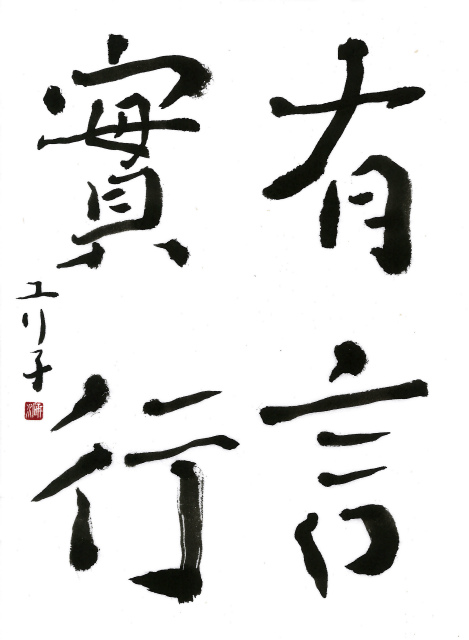 有言
實行
ユリ子